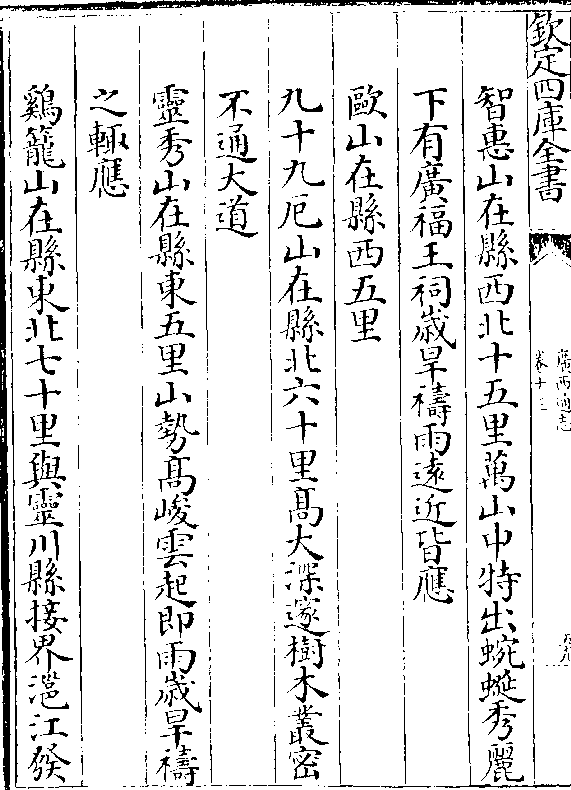 欽定四庫全書
廣西通志
卷十三
智惠山在縣西北十五里萬山中特出蜿蜒秀麗
下有廣福王祠歲旱禱雨遠近皆應
歐山在縣西五里
九十九厄山在縣北六十里髙大深邃樹木叢密
不通大道
靈秀山在縣東五里山勢髙峻雲起即雨歲旱禱
之輙應
鷄籠山在縣東北七十里與靈川縣接界潖江發